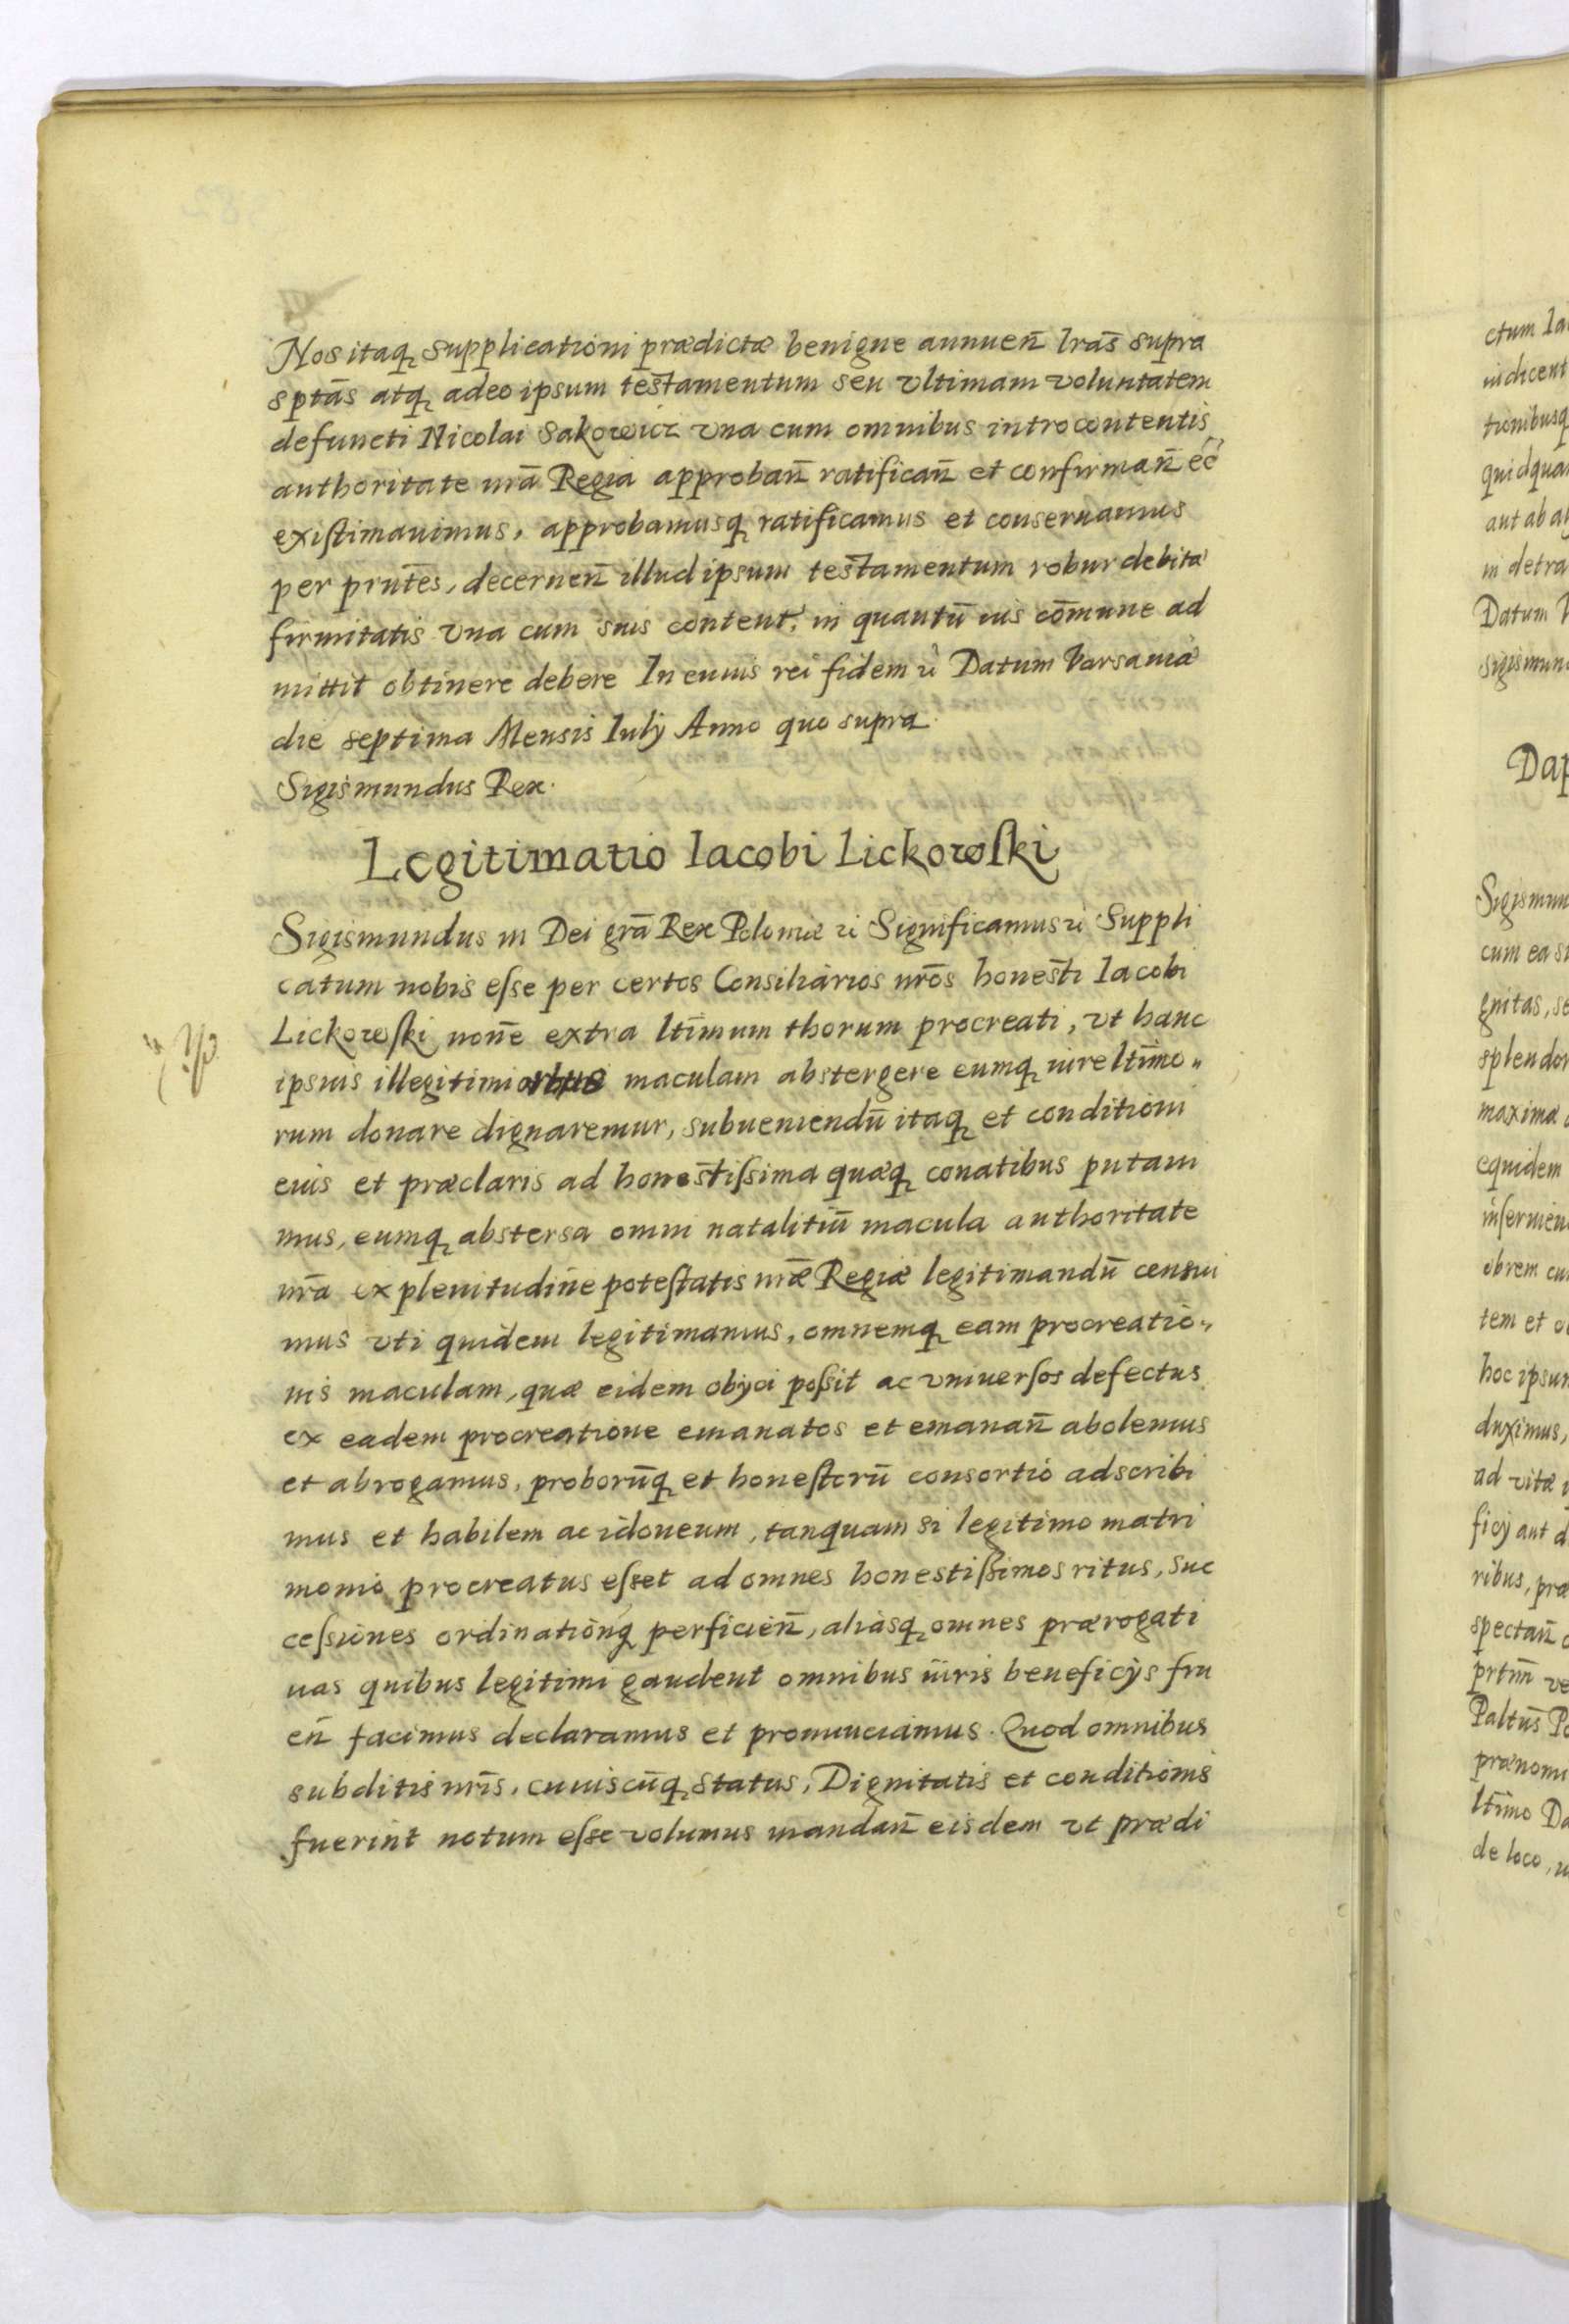 Nos itaq supplicationi prædictæ benigne annuen̄ lrās supra
sptās atq adeo ipsum testamentum seu vltimam voluntatem
defuncti Nicolai Sakowicz vna cum omnibus introcontentis
authoritate nrā Regia approban̄ ratifican̄ et confirman̄ eē
existimauimus, approbamusq ratificamus et conseruamus
per prntēs, decernen̄ illud ipsum testamentum robur debitæ
firmitatis vna cum suis content. in quantū ius cōmune ad
mittit obtinere debere In cuius rei fidem Datum Varsauiæ
die septima Mensis Iulÿ Anno quo supra
Sigismundus Rex.
Legitimatio Iacobi Lickowſki
Sigismundus III Dei grā Rex Poloniæ Significamus Suppli
catum nobis eſse per certos Consiliarios nrōs honesti Iacobi
Lickowſki non̄e extra ltīmum thorum procreati, vt hanc
ipsius illegitimi maculam abstergere eumq iure ltīmo„
rum donare dignaremur, subueniendū itaq et conditioni
eius et præclaris ad honestiſsima quæq conatibus putaui
mus, eumq abstersa omni natalitiū macula authoritate
nrā ex plenitudine poteſtatis nrǣ Regiæ legitimandū censui
mus vti quidem legitimamus, omnemq eam procreatio„
nis maculam, quæ eidem obÿci poſsit ac vniuerſos defectus
ex eadem procreatione emanatos et emanan̄ abolemus
et abrogamus, proborūq et honeſtorū consortio adscribi
mus et habilem ac idoneum, tanquam si legitimo matri
monio procreatus eſset ad omnes honestiſsimos ritus, suc
ceſsiones ordinationq perficien̄, aliasq omnes prærogati
uas quibus legitimi gaudent omnibus iuris beneficÿs fru
en̄ facimus declaramus et pronunciamus. Quod omnibus
subditis nrīs, cuiuscūq status, Dignitatis et conditionis
fuerint notum eſse volumus mandan̄ eisdem vt prædi
ctum Ia
iudicent
tionibusq
quidqua
aut ab a
in detra
Datum V
Sigismun
Dap
Sigismun
cum ea s
gnitas, se
splendor
maximæ
equidem
inſeruien
obrem cu
tem et o
hoc ipsu
duximus,
ad vitæ
ficÿ aut d
ribus, præ
spectan̄
prtn̄
Paltus̄ P
prænomi
ltīmo Da
de loco,